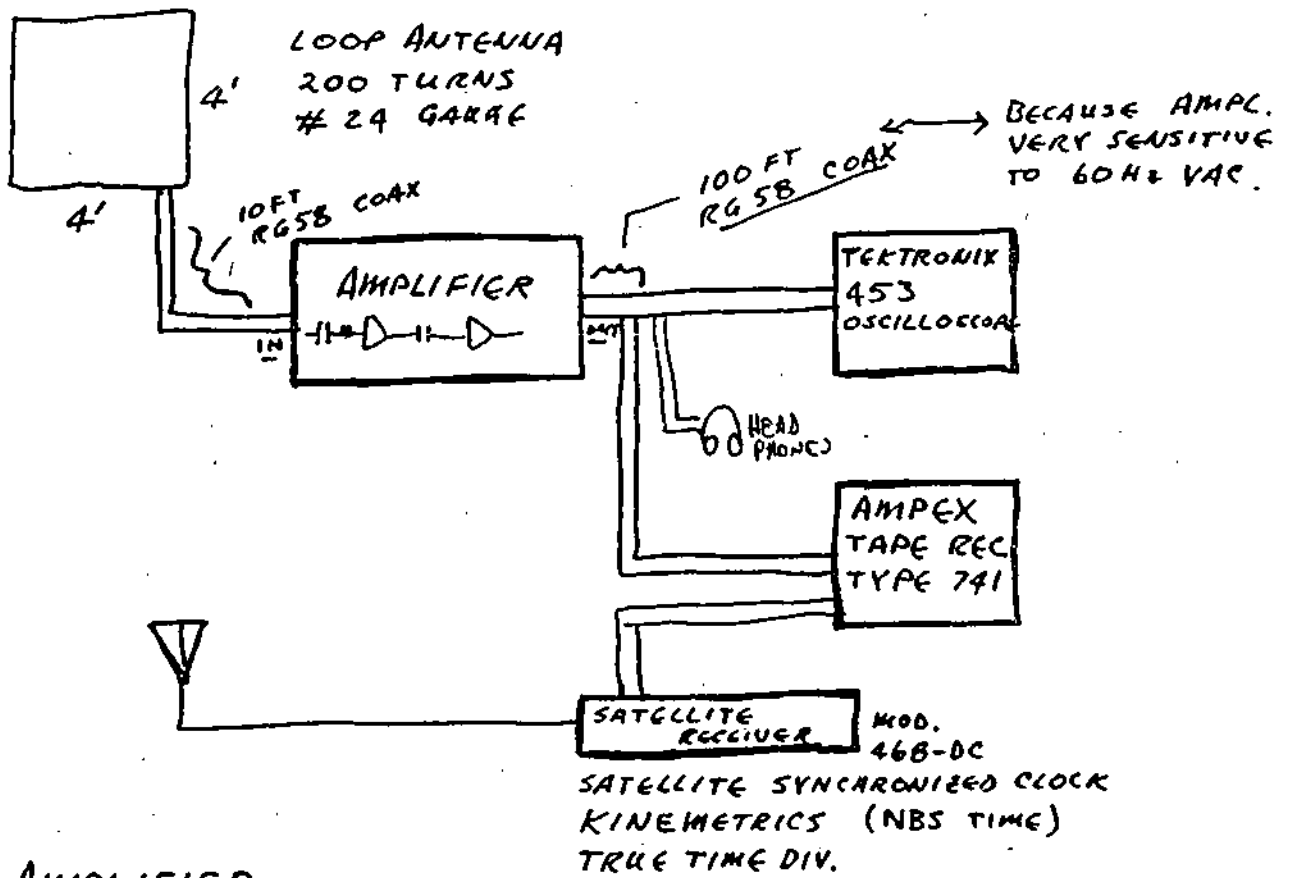 LOOP ANTENNA
200 TURNS
# 24 GAUGE
4'
4'
10 FT
RG58 COAX
100 FT
RG 58 COAX
BECAUSE AMPL.
VERY SENSITIVE
TO 60 Hz VAC.
AMPLIFIER
IN
OUT
TEKTRONIX
453
OSCILLOSCOPE
HEAD
PHONES
AMPEX
TAPE REC
TYPE 741
SATELLITE
RECEIVER
MOD.
468-DC
SATELLITE SYNCHRONIZED CLOCK
KINEMETRICS (NBS TIME)
TRUE TIME DIV.
AMPLIFIER